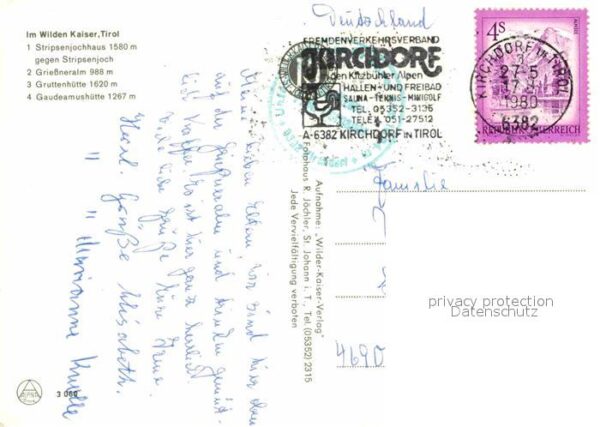 Im Wilden Kaiser, Tirol
1 Stripsenjochhaus 1580 m
gegen Stripsenjoch
2 Grießneralm 988 m
3 Gruttenhütte 1620 m
4 Gaudeamushütte 1267 m
Deutschland
FREMDENVERKEHRSVERBAND
KIRCHDORF
in den Kitzbühler Alpen
HALLEN- UND FREIBAD
SAUNA - TENNIS - MINIGOLF
TEL. 05352-3136
TELEX 051-27512
A-6382 KIRCHDORF IN TIROL
KIRCHDORF IN TIROL
27.5.
1980
6382
4S
REPUBLIK ÖSTERREICH
Meine lieben Eltern, wir sind hier
auf der Grießneralm und
Es ist hier ganz herrlich
Viele liebe Grüße Eure Irene
Herzl. Grüße Elisabeth
" Marianne
Aufnahme: „Wilder-Kaiser-Verlag"
Fotohaus R. Jöchler, St. Johann i. T., Tel. (05352) 2315
Jede Vervielfältigung verboten
Familie
4690
privacy protection
Datenschutz
3 060